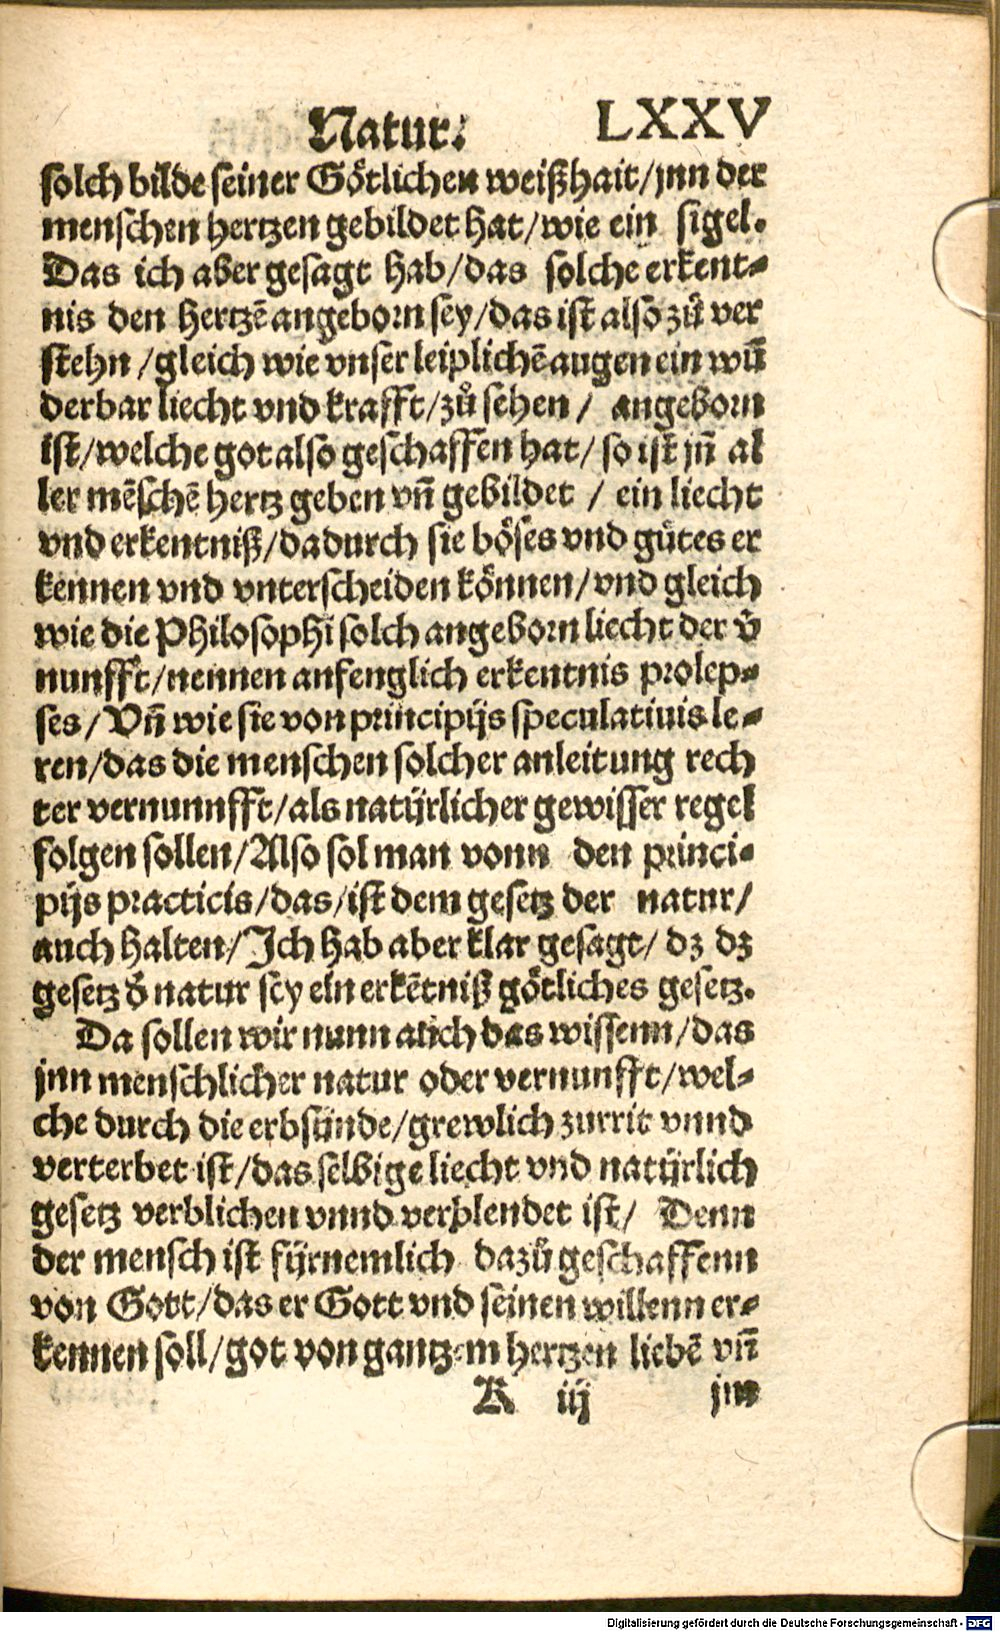 Natur. LXXV
solch bilde seiner Göttlichen weißhait/jnn der
menschen hertzen gebildet hat/wie ein sigel.
Das ich aber gesagt hab/das solche erkent-
nis den hertzē angeborn sey/das ist also zů ver
stehn/gleich wie vnser leiplichē augen ein wū
derbar liecht vnd krafft/zů sehen/ angeborn
ist/welche got also geschaffen hat/ so ist jn̄ al
ler mēschē hertz geben vn̄ gebildet / ein liecht
vnd erkentniß/dadurch sie böses vnd gůtes er
kennen vnd vnterscheiden können/vnd gleich
wie die Philosophi solch angeborn liecht der v̄
nunfft/nennen anfenglich erkentnis prolep-
ses/Vn̄ wie sie von principijs speculatiuis le-
ren/das die menschen solcher anleitung rech
ter vernunnfft/als natürlicher gewisser regel
folgen sollen/Also sol man vonn den princi-
pijs practicis/das/ist dem gesetz der natur/
auch halten/Ich hab aber klar gesagt/ dz dz
gesetz d̄ natur sey ein erkētniß götliches gesetz.
Da sollen wir nunn auch das wissenn/das
jnn menschlicher natur oder vernunfft/wel-
che durch die erbsünde/grewlich zurrit vnnd
verterbet ist/das selbige liecht vnd natürlich
gesetz verblichen vnnd verblendet ist/ Denn
der mensch ist fürnemlich dazů geschaffenn
von Gott/das er Gott vnd seinen willenn er-
kennen soll/got von gantzem hertzen liebē vn̄
K iij jnn
Digitalisierung gefördert durch die Deutsche Forschungsgemeinschaft - DFG